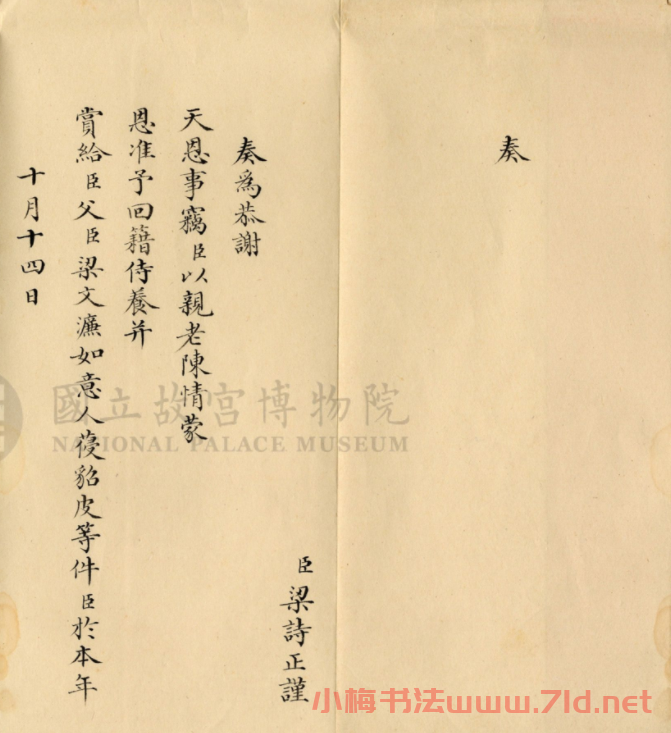 奏
臣梁詩正謹
奏爲恭謝
天恩事竊臣以親老陳情蒙
恩准予回籍侍養并
賞給臣父臣梁文濂如意人葠貂皮等件臣於本年
十月十四日
國立故宮博物院
NATIONAL PALACE MUSEUM
小梅书法www.7ld.net